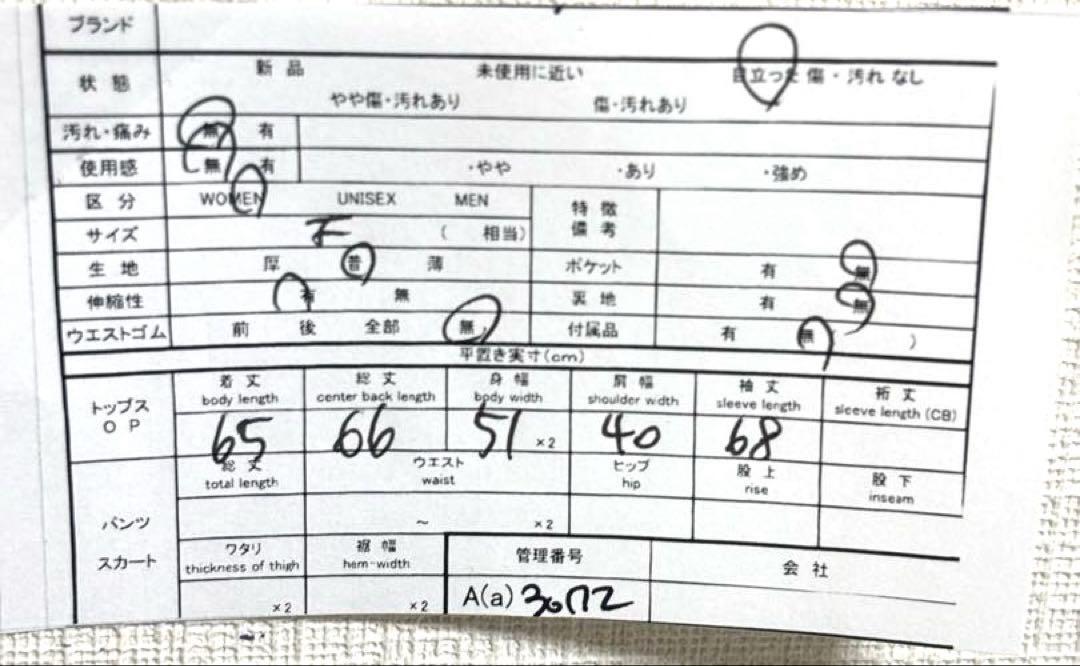 ブランド
状態 新品 未使用に近い 目立った傷・汚れなし
やや傷・汚れあり 傷・汚れあり
汚れ・痛み 無 有
使用感 無 有 ・やや ・あり ・強め
区分 WOMEN UNISEX MEN 特徴
備考
サイズ F ( 相当)
生地 厚 普 薄 ポケット 有 無
伸縮性 有 無 裏地 有 無
ウエストゴム 前 後 全部 無 付属品 有 無 )
平置き実寸(cm)
トップス
OP
着丈 総丈 身幅 肩幅 袖丈 裄丈
body length center back length body width shoulder width sleeve length sleeve length (CB)
65 66 51 ×2 40 68
総丈 ウエスト ヒップ 股上 股下
total length waist hip rise inseam
パンツ ~ ×2
スカート ワタリ 裾幅 管理番号 会社
thickness of thigh hem-width
×2 ×2 A(a)